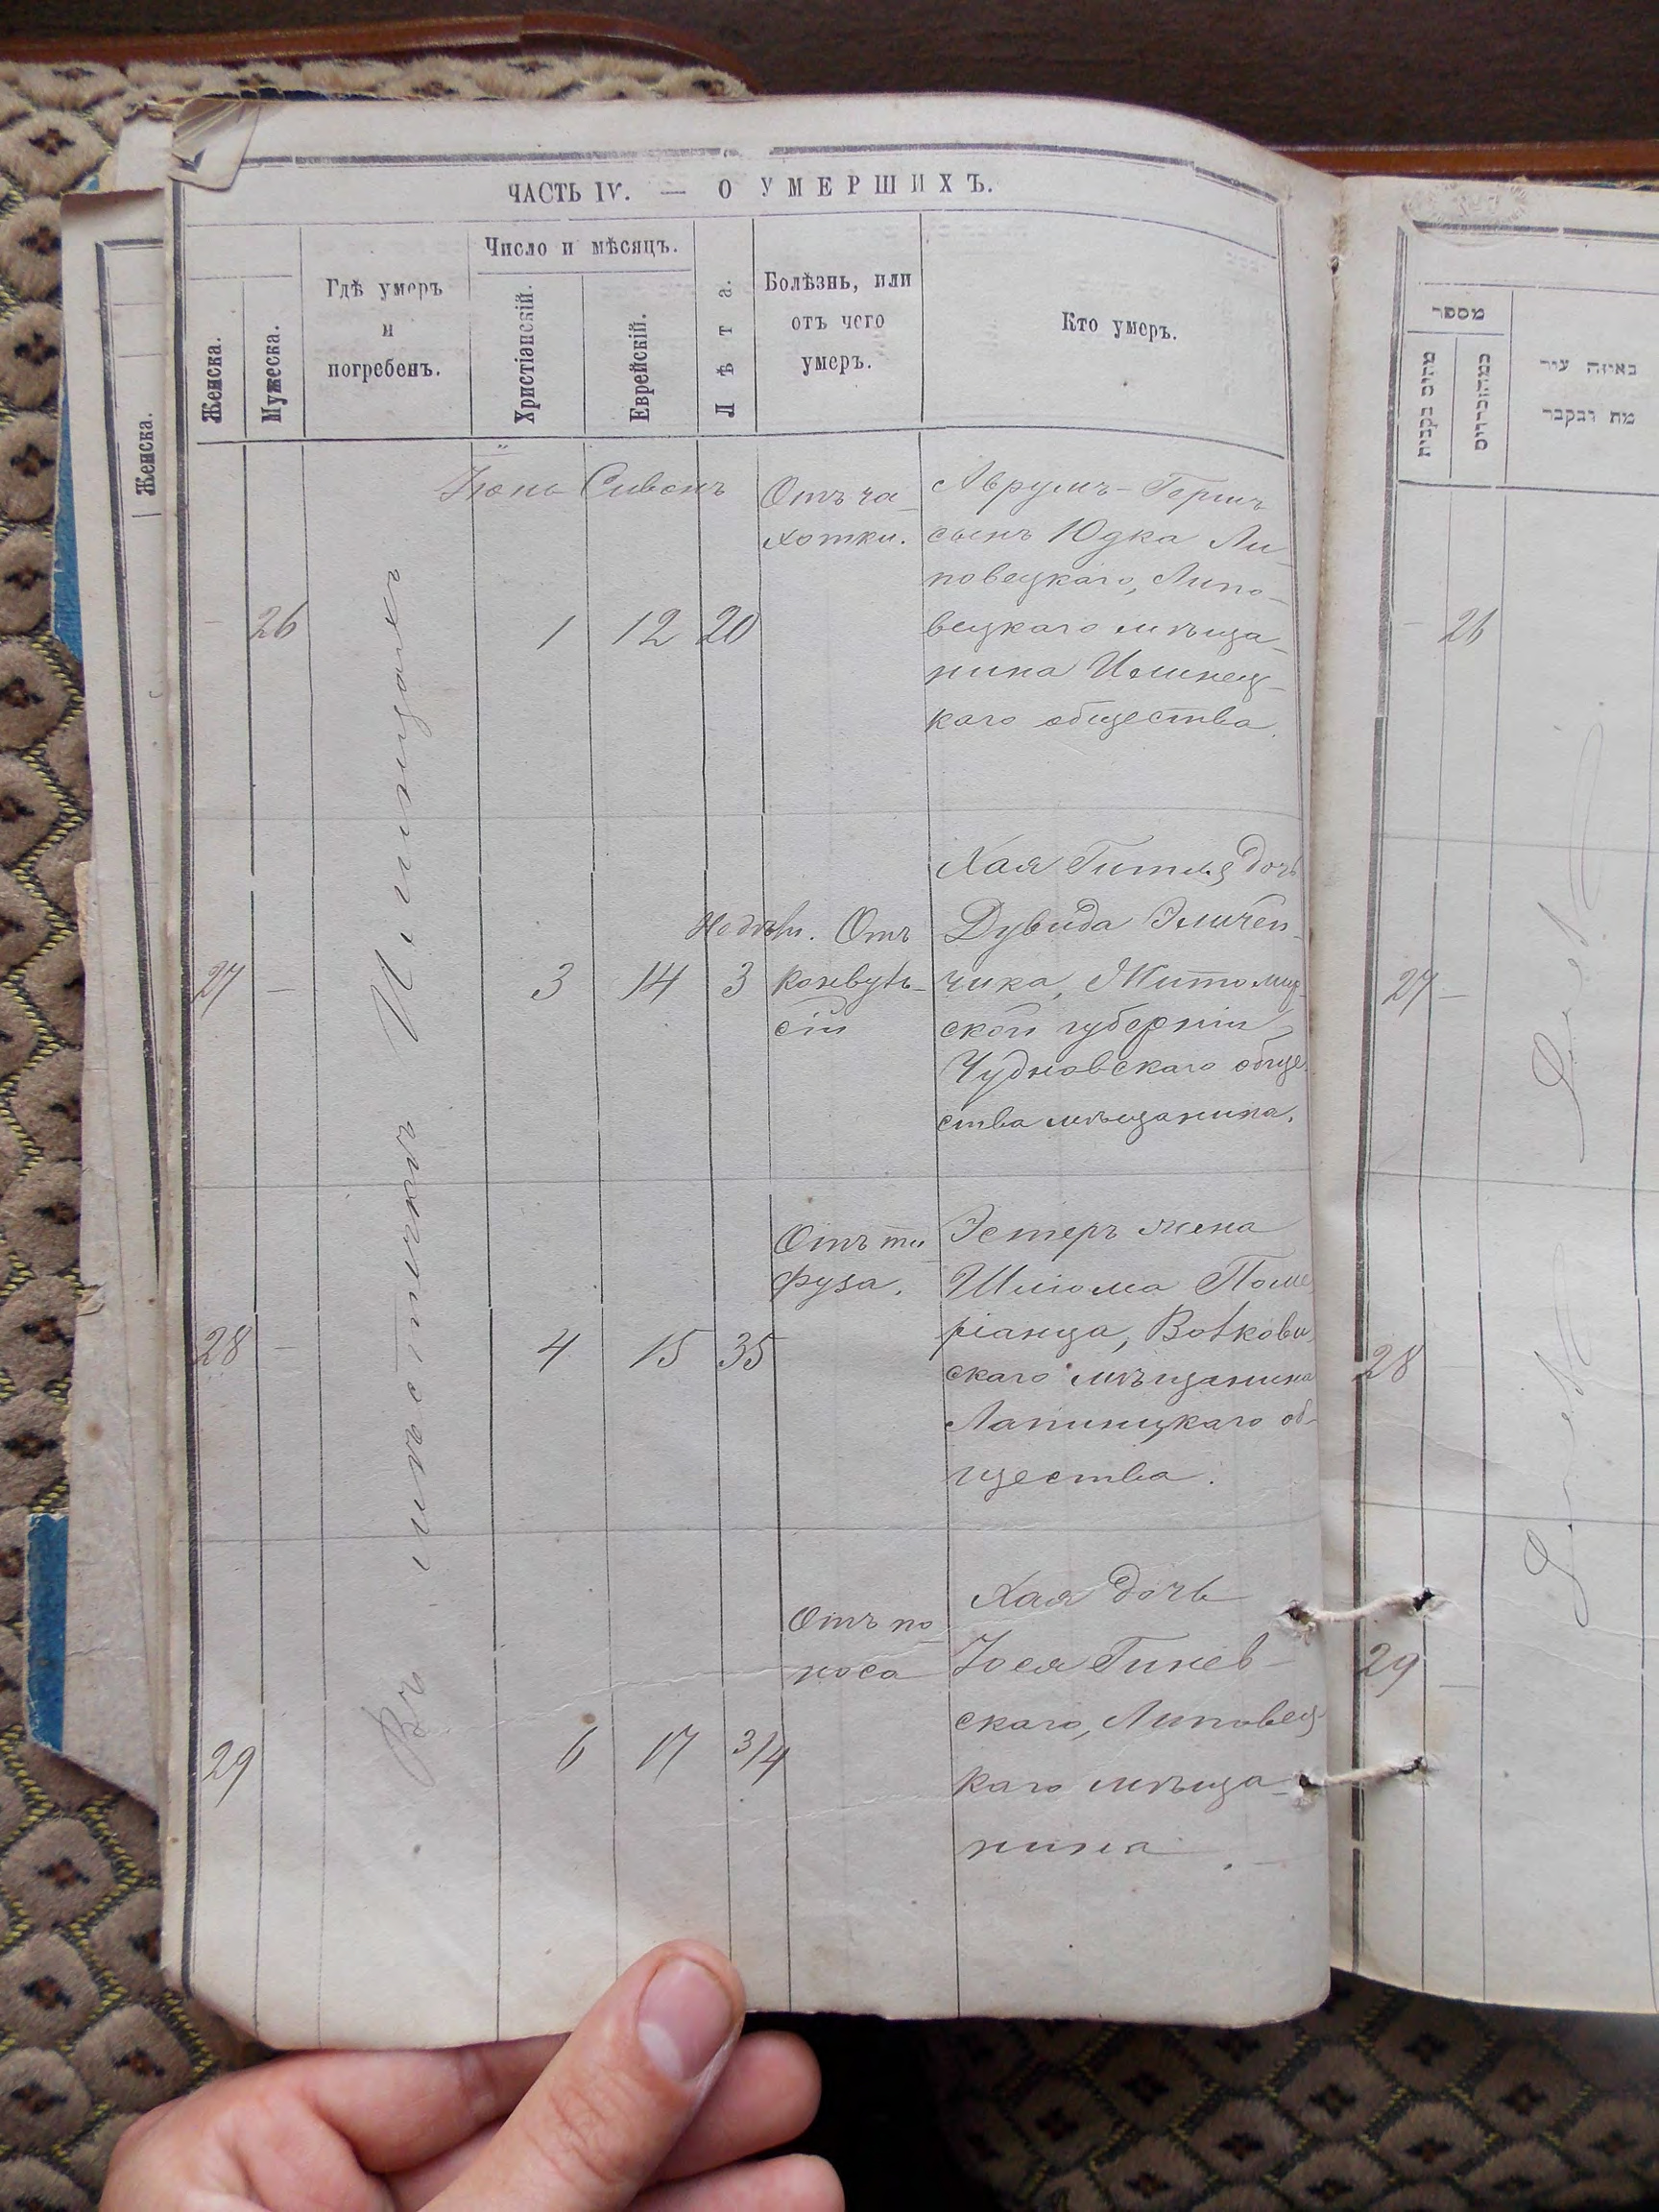 ЧАСТЬ IV. — О УМЕРШИХЪ.
Женска.
Мужеска.
Гдѣ умеръ
и
погребенъ.
Число и мѣсяцъ.
Христіанскій.
Еврейскій.
Лѣта.
Болѣзнь, или
отъ чего
умеръ.
Кто умеръ.
Въ мѣстечкѣ Илинцахъ
Іюнь Сивонъ
26
1
12
20
Отъ ча-
хотки.
Аврумъ-Гершъ
сынъ Юдка Ли
повецкаго, Липо-
вецкаго мѣща-
нина Илинец-
каго общества.
27
—
3
14
Недѣли.
3
Отъ
конвуль-
сій
Хая Гитля дочь
Дувида
чика, Житомир-
ской губерніи
Чудновскаго обще-
ства мѣщанина.
28
—
4
15
35
Отъ ти
фуза.
Эстеръ жена
Шліома Поме
ріанца,
скаго мѣщанина
об-
щества.
29
6
17
3/4
Отъ по-
носа
Хая дочь
Іося Гинев-
скаго, Липовец-
каго мѣща-
нина.
Женска.
מספר
באיזה עיר
מת ונקבר
26
27
—
28
29
—